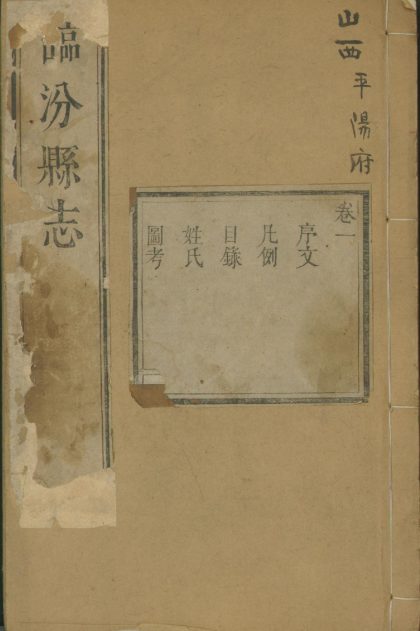 山西平陽府
卷一
序文
凡例
目錄
姓氏
圖考
臨汾縣志